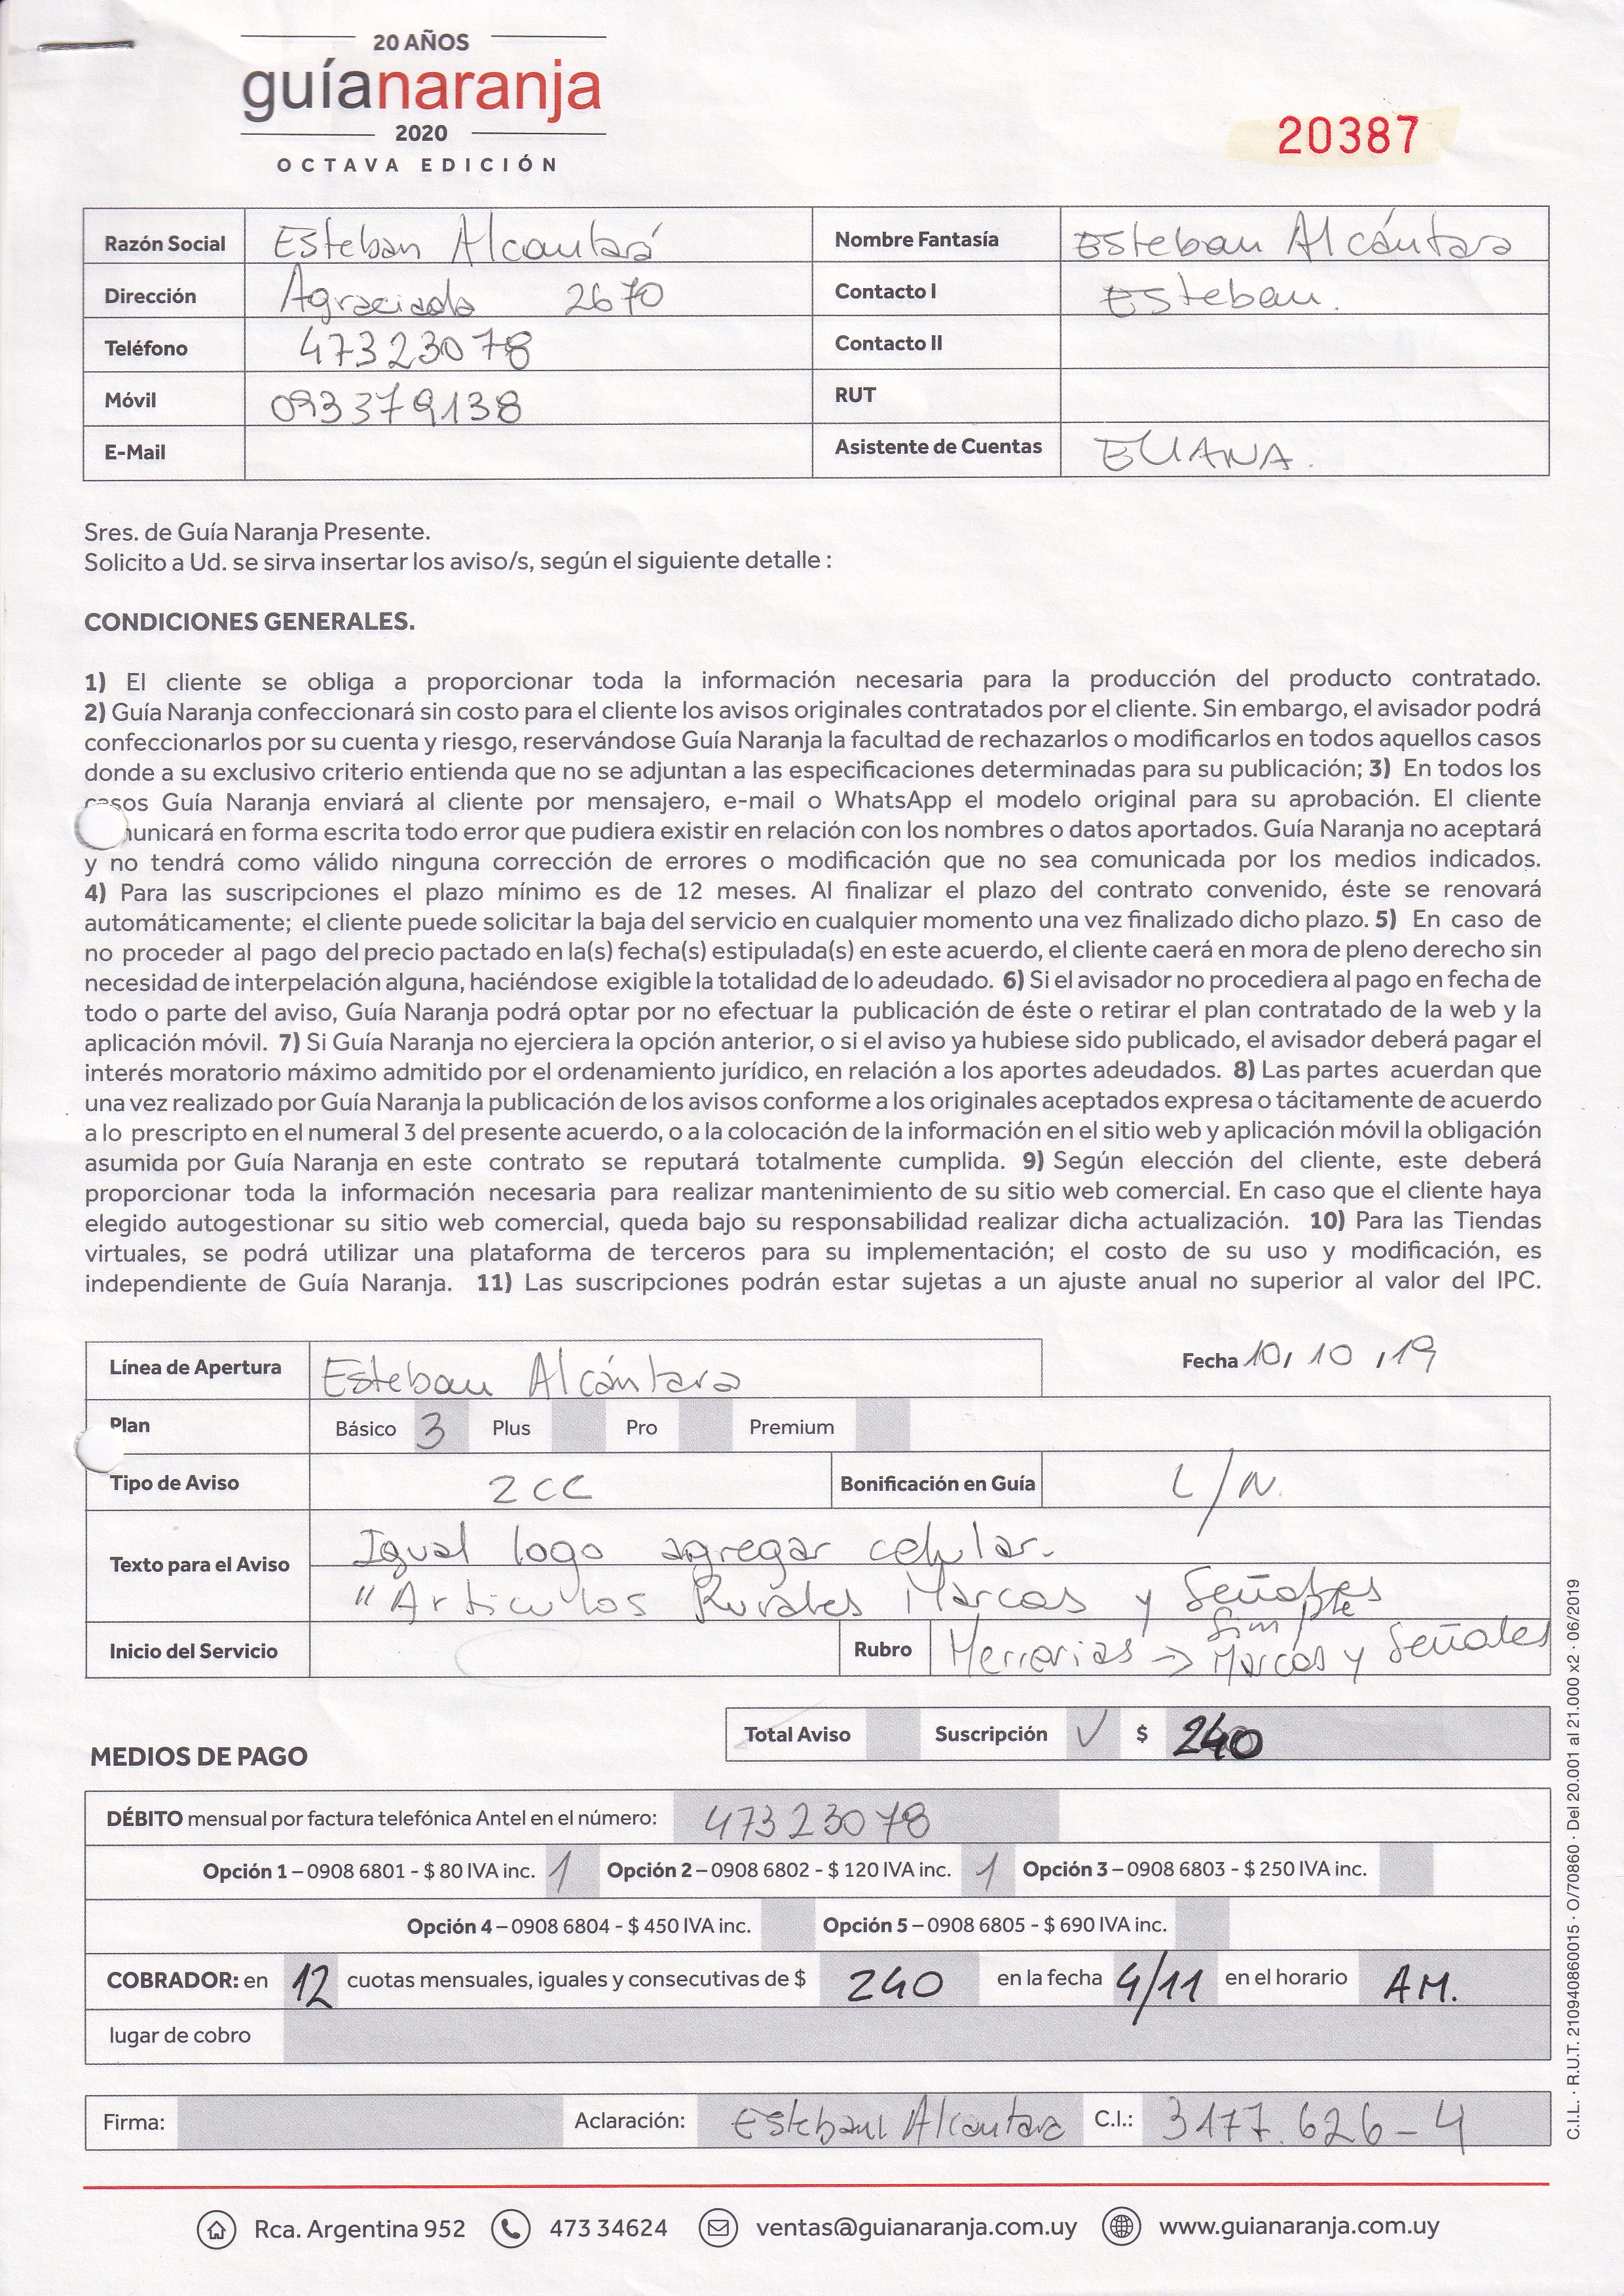 20 AÑOS
guíanaranja
2020
OCTAVA EDICIÓN
20387
Razón Social Esteban Alcantará Nombre Fantasía Esteban Alcántara
Dirección Agraciada 2670 Contacto I Esteban.
Teléfono 47323078 Contacto II
Móvil 093379138 RUT
E-Mail Asistente de Cuentas ELIANA.
Sres. de Guía Naranja Presente.
Solicito a Ud. se sirva insertar los aviso/s, según el siguiente detalle :
CONDICIONES GENERALES.
1) El cliente se obliga a proporcionar toda la información necesaria para la producción del producto contratado.
2) Guía Naranja confeccionará sin costo para el cliente los avisos originales contratados por el cliente. Sin embargo, el avisador podrá
confeccionarlos por su cuenta y riesgo, reservándose Guía Naranja la facultad de rechazarlos o modificarlos en todos aquellos casos
donde a su exclusivo criterio entienda que no se adjuntan a las especificaciones determinadas para su publicación; 3) En todos los
casos Guía Naranja enviará al cliente por mensajero, e-mail o WhatsApp el modelo original para su aprobación. El cliente
unicará en forma escrita todo error que pudiera existir en relación con los nombres o datos aportados. Guía Naranja no aceptará
y no tendrá como válido ninguna corrección de errores o modificación que no sea comunicada por los medios indicados.
4) Para las suscripciones el plazo mínimo es de 12 meses. Al finalizar el plazo del contrato convenido, éste se renovará
automáticamente; el cliente puede solicitar la baja del servicio en cualquier momento una vez finalizado dicho plazo. 5) En caso de
no proceder al pago del precio pactado en la(s) fecha(s) estipulada(s) en este acuerdo, el cliente caerá en mora de pleno derecho sin
necesidad de interpelación alguna, haciéndose exigible la totalidad de lo adeudado. 6) Si el avisador no procediera al pago en fecha de
todo o parte del aviso, Guía Naranja podrá optar por no efectuar la publicación de éste o retirar el plan contratado de la web y la
aplicación móvil. 7) Si Guía Naranja no ejerciera la opción anterior, o si el aviso ya hubiese sido publicado, el avisador deberá pagar el
interés moratorio máximo admitido por el ordenamiento jurídico, en relación a los aportes adeudados. 8) Las partes acuerdan que
una vez realizado por Guía Naranja la publicación de los avisos conforme a los originales aceptados expresa o tácitamente de acuerdo
a lo prescripto en el numeral 3 del presente acuerdo, o a la colocación de la información en el sitio web y aplicación móvil la obligación
asumida por Guía Naranja en este contrato se reputará totalmente cumplida. 9) Según elección del cliente, este deberá
proporcionar toda la información necesaria para realizar mantenimiento de su sitio web comercial. En caso que el cliente haya
elegido autogestionar su sitio web comercial, queda bajo su responsabilidad realizar dicha actualización. 10) Para las Tiendas
virtuales, se podrá utilizar una plataforma de terceros para su implementación; el costo de su uso y modificación, es
independiente de Guía Naranja. 11) Las suscripciones podrán estar sujetas a un ajuste anual no superior al valor del IPC.
Línea de Apertura Esteban Alcántara Fecha 10/ 10 /19
Plan Básico 3 Plus Pro Premium
Tipo de Aviso 2CC Bonificación en Guía L/N.
Texto para el Aviso Igual logo agregar celular.
"Articulos Rurales Marcas y Señales
Inicio del Servicio Rubro Herrerias → Marcas y Señales
Total Aviso Suscripción ✓ $ 240
MEDIOS DE PAGO
DÉBITO mensual por factura telefónica Antel en el número: 47323078
Opción 1 – 0908 6801 - $ 80 IVA inc. 1 Opción 2 – 0908 6802 - $ 120 IVA inc. 1 Opción 3 – 0908 6803 - $ 250 IVA inc.
Opción 4 – 0908 6804 - $ 450 IVA inc. Opción 5 – 0908 6805 - $ 690 IVA inc.
COBRADOR: en 12 cuotas mensuales, iguales y consecutivas de $ 240 en la fecha 4/11 en el horario A.M.
lugar de cobro
Firma: Aclaración: Esteban Alcantara C.I.: 3177.626-4
C.I.L. · R.U.T. 210940860015 · O/70860 · Del 20.001 al 21.000 x2 · 06/2019
Rca. Argentina 952 473 34624 ventas@guianaranja.com.uy www.guianaranja.com.uy